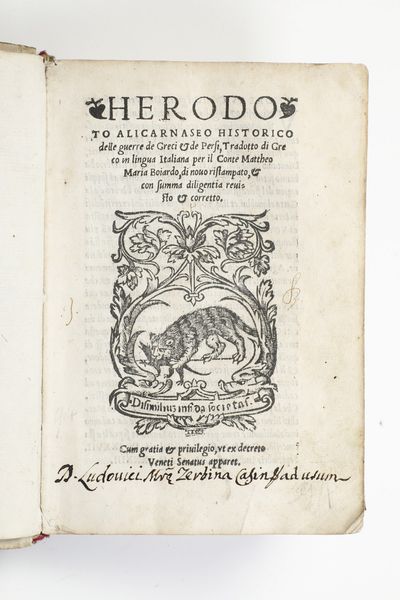 HERODO
TO ALICARNASEO HISTORICO
delle guerre de Greci & de Persi, Tradotto di Gre
co in lingua Italiana per il Conte Mattheo
Maria Boiardo, di nouo ristampato, &
con summa diligentia reui-
sto & corretto.
Dissimilium infida societas.
Cum gratia & priuilegio, vt ex decreto
Veneti Senatus apparet.
D. Ludovici Zerbina ad usum